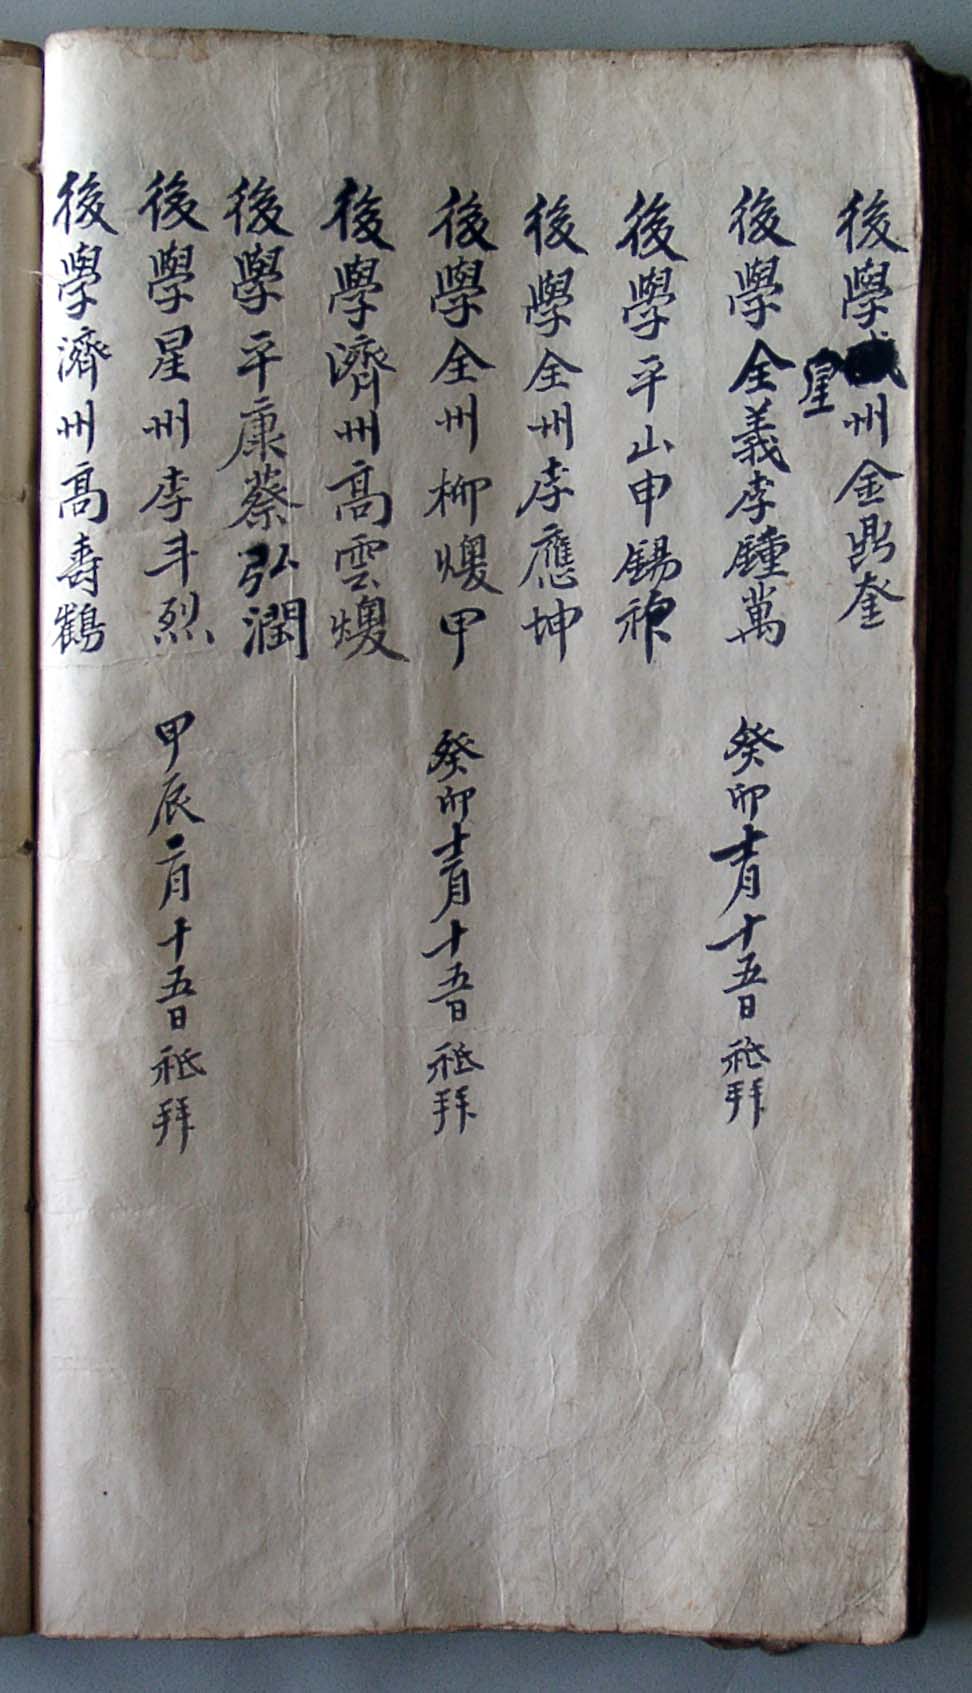 後學星州金鼎奎
後學全義李鍾萬
癸卯十一月十五日祗拜
後學平山申錫
後學全州李應坤
後學全州柳㷞甲
癸卯十二月十五日祗拜
後學濟州高雲㷞
後學平康蔡弘潤
後學星州李斗烈
甲辰二月十五日祗拜
後學濟州高壽鶴